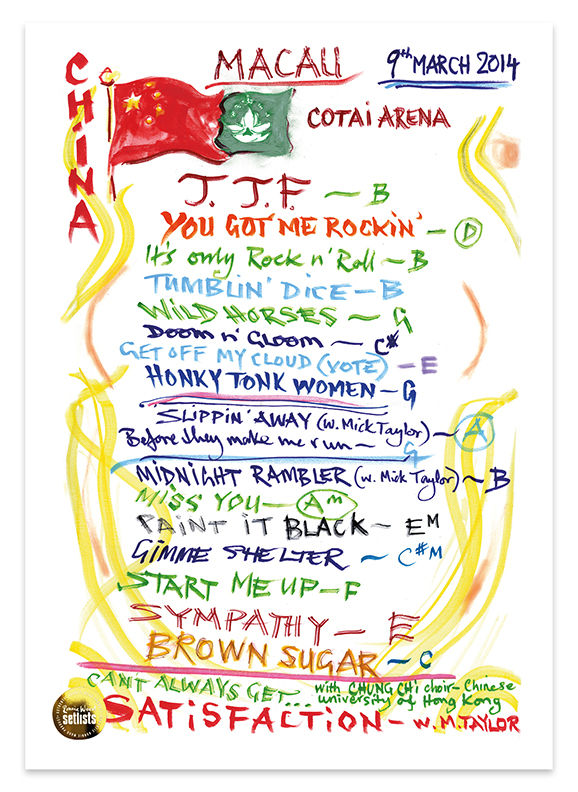 CHINA
MACAU
9th MARCH 2014
COTAI ARENA
J.J.F. ~ B
YOU GOT ME ROCKIN' - D
It's only Rock n' Roll ~ B
TUMBLIN' DICE - B
WILD HORSES ~ G
DOOM n' GLOOM ~ C#
GET OFF MY CLOUD (VOTE) - E
HONKY TONK WOMEN - G
SLIPPIN' AWAY (w. Mick Taylor) ~ A
Before they make me run ~ G
MIDNIGHT RAMBLER (w. Mick Taylor) ~ B
MISS YOU - Am
PAINT IT BLACK ~ EM
GIMME SHELTER ~ C#M
START ME UP - F
SYMPATHY - E
BROWN SUGAR - C
CANT ALWAYS GET... with CHUNG CHi choir - Chinese
university of Hong Kong
SATiSFACTiON - W. M. TAYLOR
Ronnie Wood
setlists